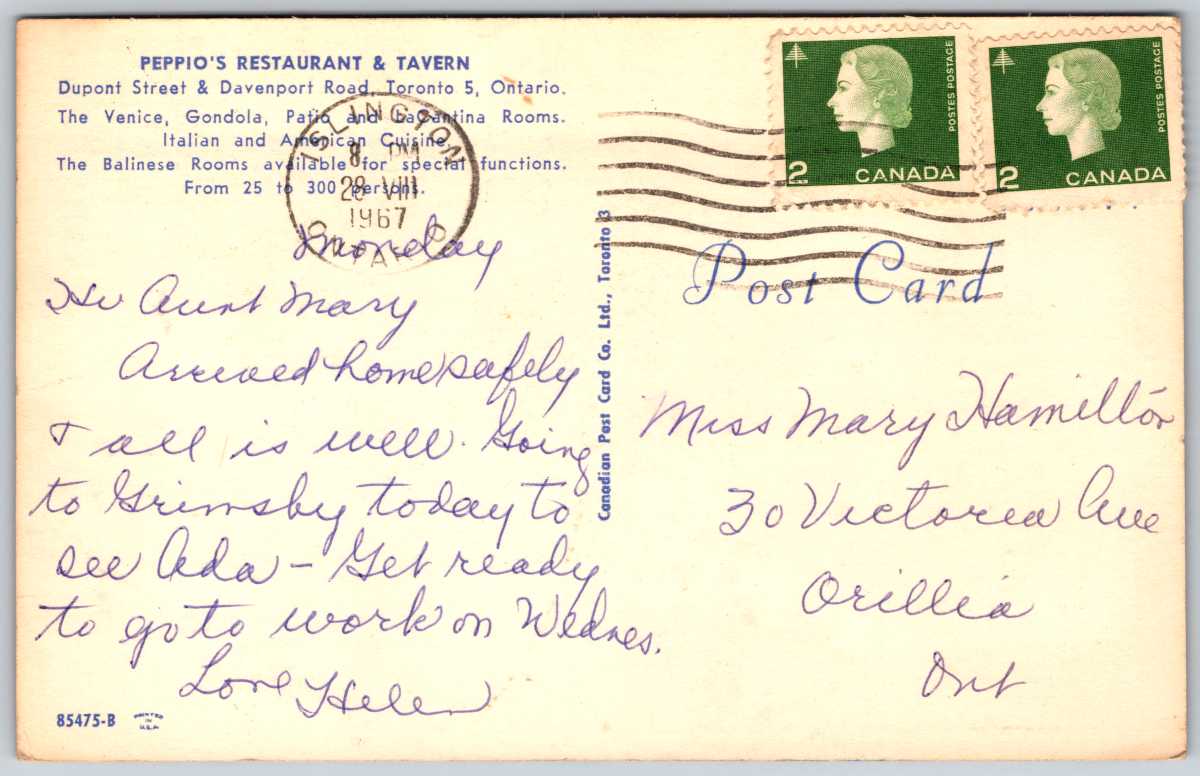 PEPPIO'S RESTAURANT & TAVERN
Dupont Street & Davenport Road, Toronto 5, Ontario.
The Venice, Gondola, Patio and LaCantina Rooms.
Italian and American Cuisine.
The Balinese Rooms available for special functions.
From 25 to 300 persons.
ISLINGTON
8 PM
28 VIII
1967
ONTARIO
Monday
Hi Aunt Mary
Arrived home safely
& all is well. Going
to Grimsby today to
see Ada – Get ready
to go to work on Wednes.
Love Helen
85475-B
PRINTED
IN
U.S.A.
Canadian Post Card Co. Ltd., Toronto 3
POSTES POSTAGE
2 CANADA
POSTES POSTAGE
2 CANADA
Post Card
Miss Mary Hamilton
30 Victoria Ave
Orillia
Ont